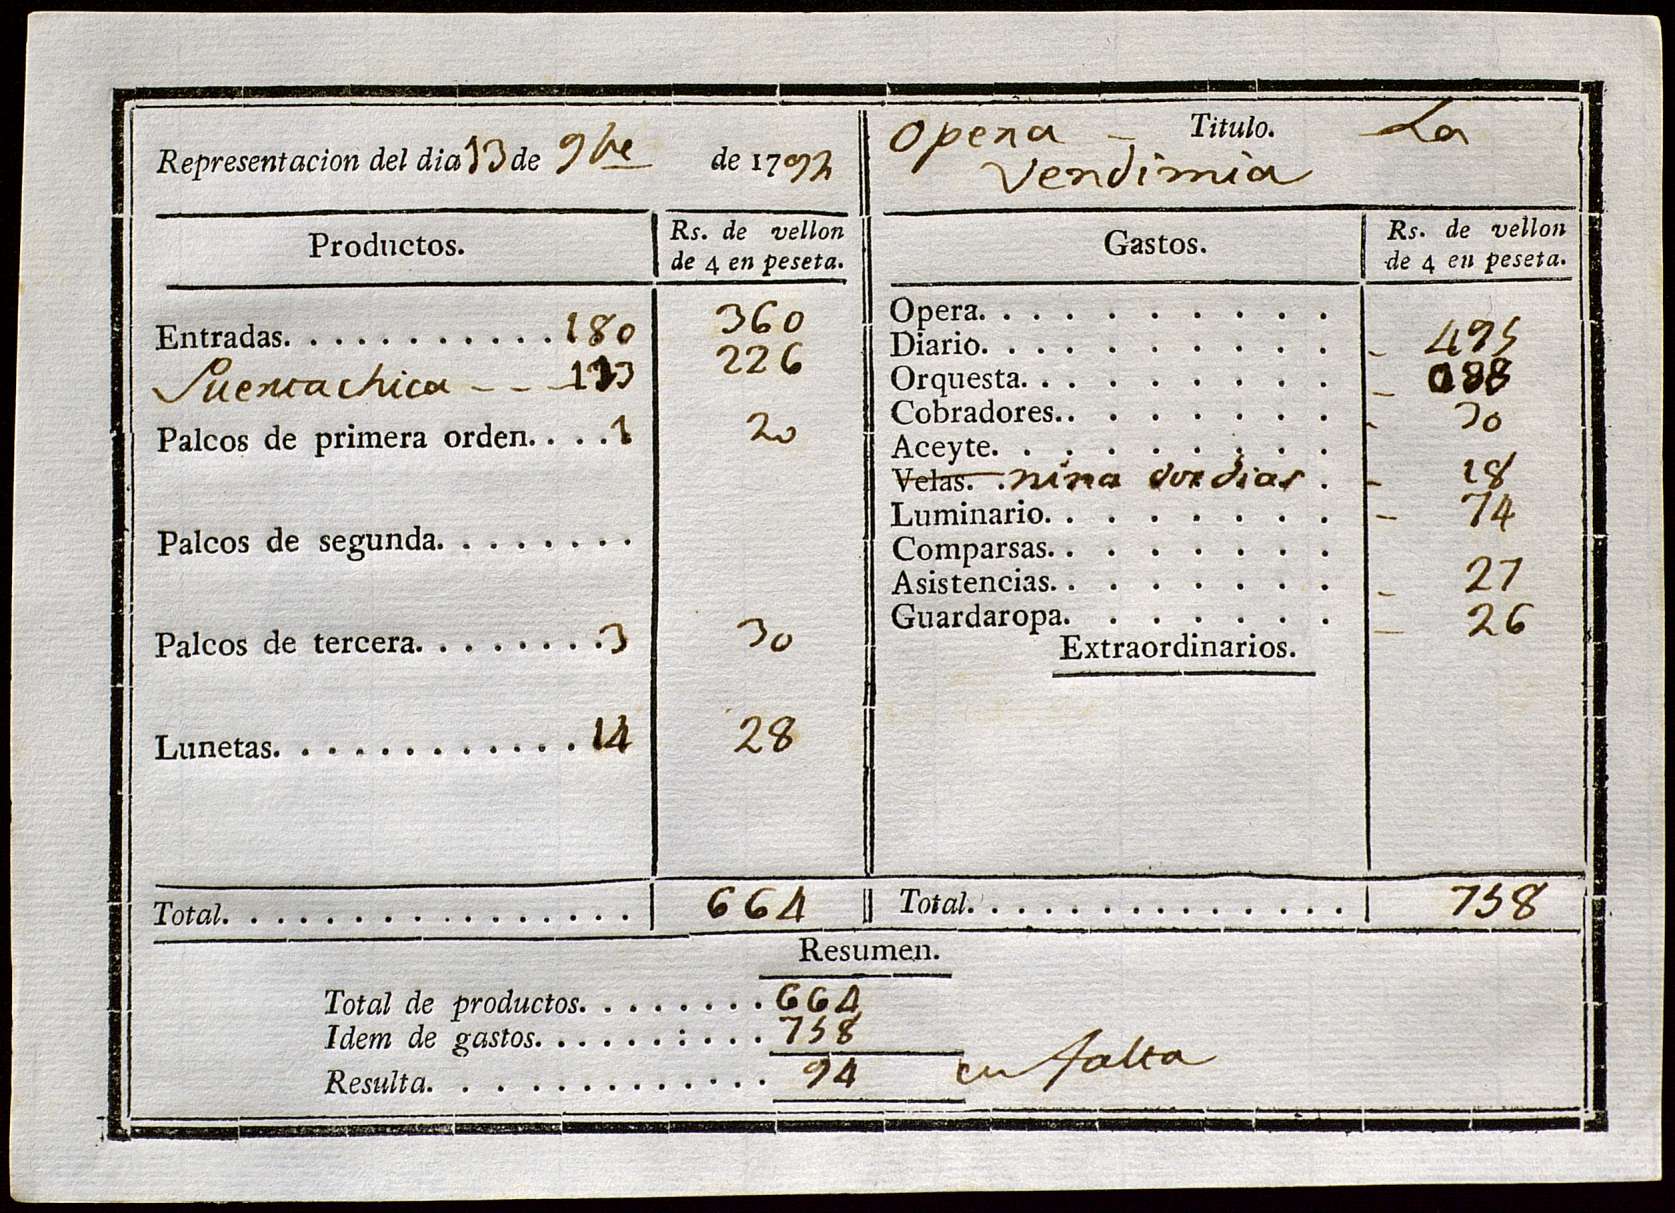 Representacion del dia 13 de 9bre de 1792
Opera – Titulo. La
Vendimia
Productos. Rs. de vellon
de 4 en peseta.
Entradas. . . . . . . . . . . 180 360
Puerta chica - - - 113 226
Palcos de primera orden. . . . 1 20
Palcos de segunda. . . . . . . .
Palcos de tercera. . . . . . . . 3 30
Lunetas. . . . . . . . . . . . . 14 28
Total. . . . . . . . . . . . . . . . 664
Gastos. Rs. de vellon
de 4 en peseta.
Opera. . . . . . . . . .
Diario. . . . . . . . . . - 495
Orquesta. . . . . . . . . - 088
Cobradores. . . . . . . . - 30
Aceyte. . . . . . . . . .
Velas. . niña dos dias . - 18
Luminario. . . . . . . . - 74
Comparsas. . . . . . . .
Asistencias. . . . . . . . - 27
Guardaropa. . . . . . . - 26
Extraordinarios.
Total. . . . . . . . . . . . . . . 758
Resumen.
Total de productos. . . . . . . . 664
Idem de gastos. . . . . . : . . . 758
Resulta. . . . . . . . . . . . . 94 en falta